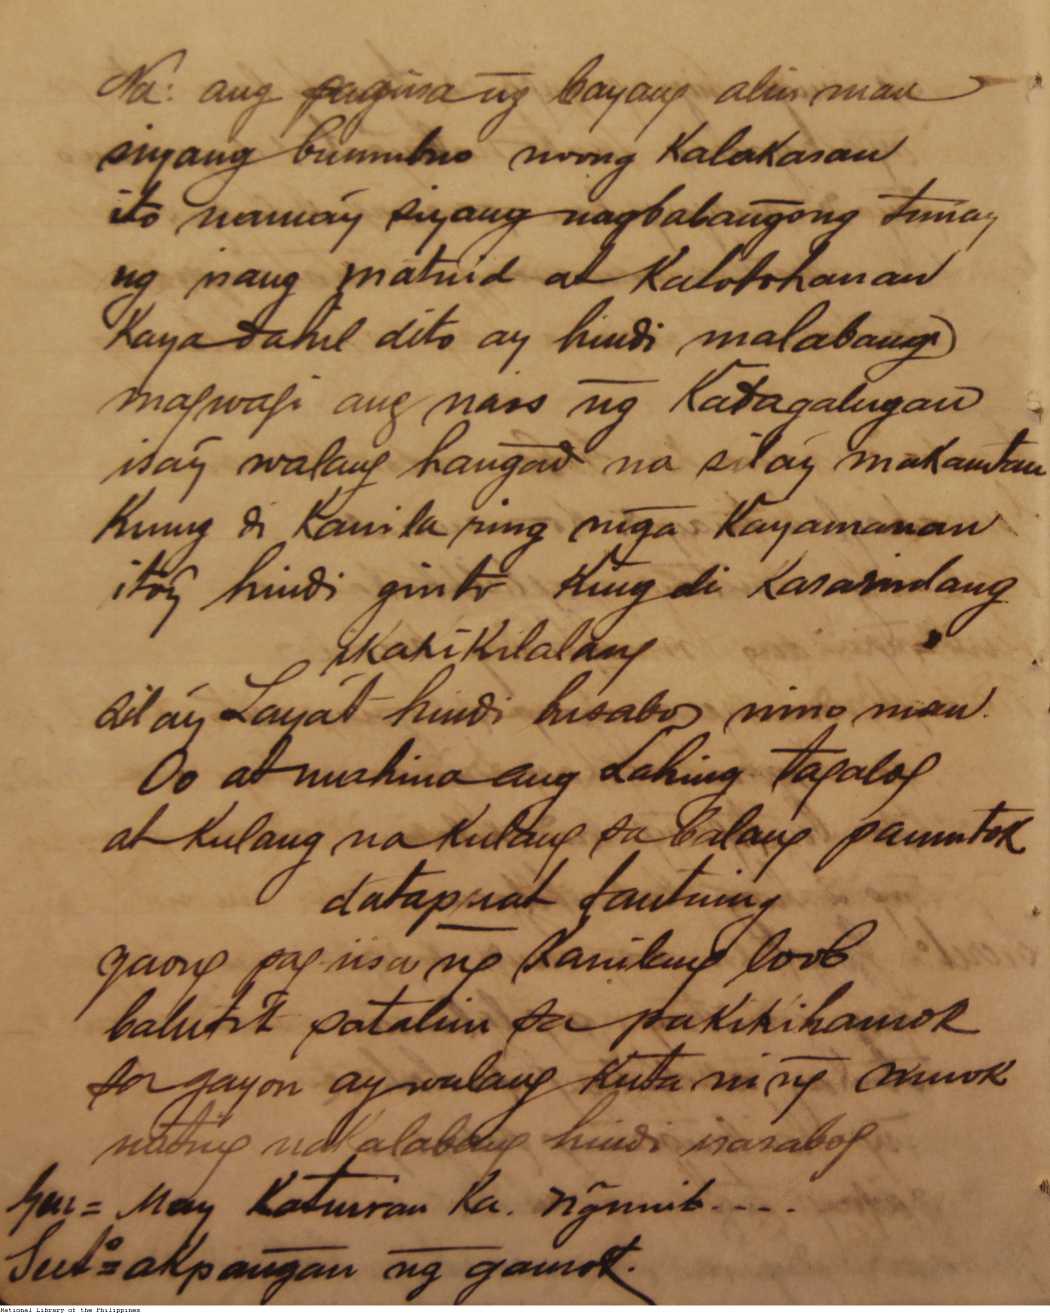 Na: ang pagiisa ng̃ bayang alin man
siyang bumubuo noong Kalakasan
ito namáy siyang nagbabang̃ong tunay
ng isang matuid at Katotohanan
Kaya dahil dito ay hindi malabang
magwagi ang nais ng̃ Katagalugan
isáy walang hang̃ad na siláy makamtan
Kung di Kanila ring mg̃a Kayamanan
itóy hindi ginto Kung di Kasarinlang
ikakikilalang
siláy Layát hindi busabos nino man.
Oo at mahina ang Lahing tagalog
at Kulang na Kulang sa balang panutok
datapuat
gaong pag iisa ng̃ Kanilang loob
baluti't patalim sa pakikihamok
sa gayon ay walang Kuta ni ng̃ muok
nating nakalabang hindi isasabog
Gen = May Katuiran Ka. ng̃unit....
= akpang̃an ng̃ gamot.
National Library of the Philippines